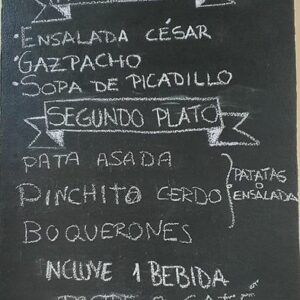 ·ENSALADA CÉSAR
·GAZPACHO
·SOPA DE PICADILLO
SEGUNDO PLATO
PATA ASADA
PINCHITO CERDO
BOQUERONES
PATATAS
O
ENSALADA
INCLUYE 1 BEBIDA